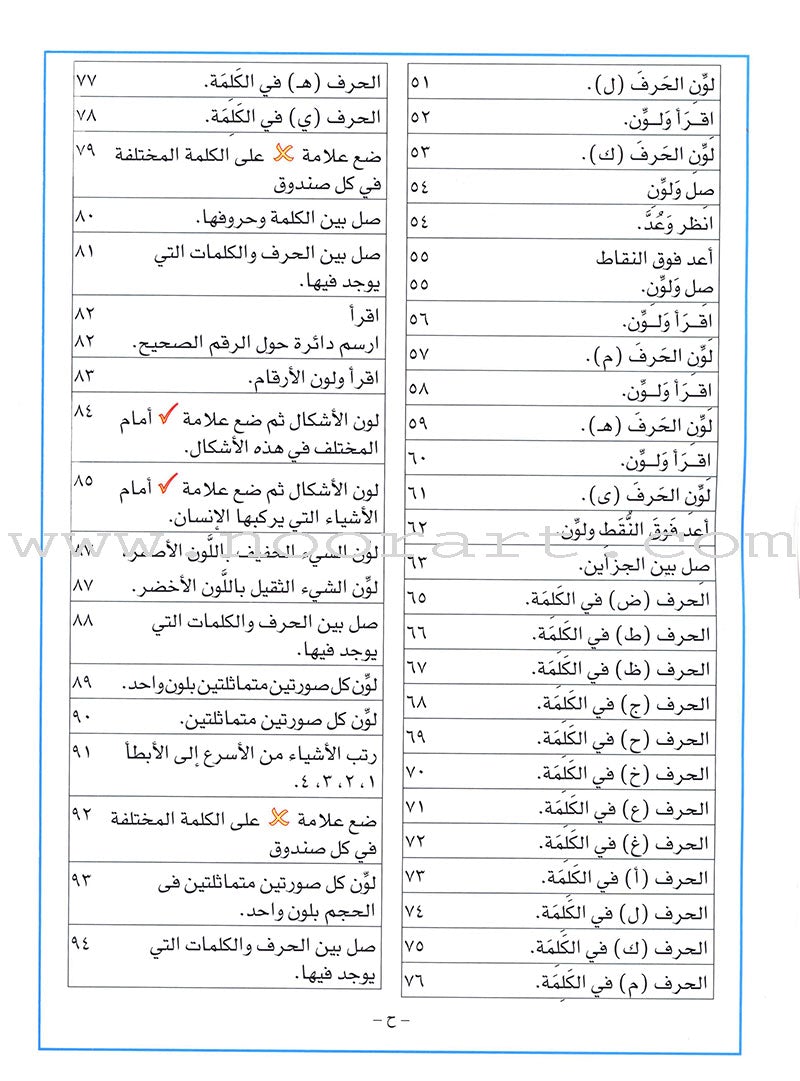 لوِّنِ الحَرفَ (ل). ٥١
اقـرَأ وَلـوِّن. ٥٢
لَوِّنِ الحَرفَ (ك). ٥٣
صل وَلوِّن ٥٤
انظر وَعُدَّ. ٥٤
أعد فوق النقاط ٥٥
صل وَلوِّن. ٥٥
اقـرَأ وَلـوِّن. ٥٦
لَوِّنِ الحَرفَ (م). ٥٧
اقـرَأ وَلـوِّن. ٥٨
لَوِّنِ الحَرفَ (هـ). ٥٩
اقـرَأ وَلـوِّن. ٦٠
لَوِّنِ الحَرفَ (ى). ٦١
أعد فَوقَ النُّقَط ولوِّن. ٦٢
صل بين الجزأين. ٦٣
الحرف (ض) في الكَلِمَة. ٦٥
الحرف (ط) في الكَلِمَة. ٦٦
الحرف (ظ) في الكَلِمَة. ٦٧
الحرف (ج) في الكَلِمَة. ٦٨
الحرف (ح) في الكَلِمَة. ٦٩
الحرف (خ) في الكَلِمَة. ٧٠
الحرف (ع) في الكَلِمَة. ٧١
الحرف (غ) في الكَلِمَة. ٧٢
الحرف (أ) في الكَلِمَة. ٧٣
الحرف (ل) في الكَلِمَة. ٧٤
الحرف (ك) في الكَلِمَة. ٧٥
الحرف (م) في الكَلِمَة. ٧٦
الحرف (هـ) في الكَلِمَة. ٧٧
الحرف (ي) في الكَلِمَة. ٧٨
ضع علامة ✗ على الكلمة المختلفة ٧٩
في كل صندوق
صل بين الكلمة وحروفها. ٨٠
صل بين الحرف والكلمات التي ٨١
يوجد فيها.
اقرأ ٨٢
ارسم دائرة حول الرقم الصحيح. ٨٢
اقرأ ولون الأرقام. ٨٣
لون الأشكال ثم ضع علامة ✓ أمام ٨٤
المختلف في هذه الأشكال.
لون الأشكال ثم ضع علامة ✓ أمام ٨٥
الأشياء التي يركبها الإنسان.
لوِّن الشيء الخفيف باللَّون الأصفر. ٨٧
لوِّن الشيء الثقيل باللَّون الأخضر. ٨٧
صل بين الحرف والكلمات التي ٨٨
يوجد فيها.
لوِّن كل صورتين متماثلتين بلون واحد. ٨٩
لوِّن كل صورتين متماثلتين. ٩٠
رتب الأشياء من الأسرع إلى الأبطأ ٩١
١، ٢، ٣، ٤.
ضع علامة ✗ على الكلمة المختلفة ٩٢
في كل صندوق
لوِّن كل صورتين متماثلتين فى ٩٣
الحجم بلون واحد.
صل بين الحرف والكلمات التي ٩٤
يوجد فيها.
- ح -
www.noorart.com